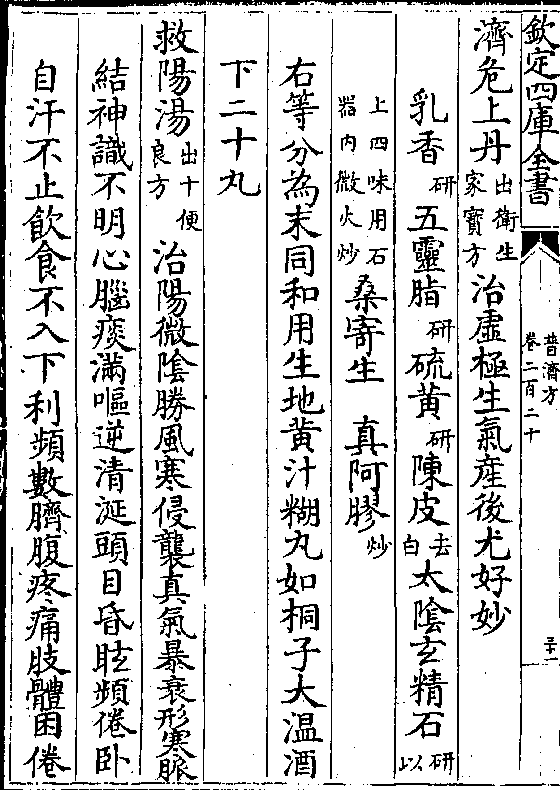 欽定四庫全書
普濟方
卷二百二十
二十
濟危上丹出衛生家寶方治虛極生氣産後尤好妙
乳香研五靈脂研硫黄研陳皮去白太陰玄精石研以
上四味用石器内微火炒桑寄生 真阿膠炒
右等分為末同和用生地黄汁糊丸如桐子大温酒
下二十丸
救陽湯出十便良方治陽微陰勝風寒侵襲真氣暴衰形寒脈
結神識不明心腦痰滿嘔逆清涎頭目昏眩頻倦卧
自汗不止飲食不入下利頻數臍腹疼痛肢體困倦